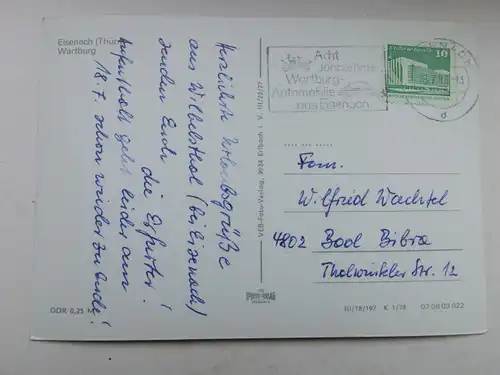 Eisenach (Thür
Wartburg
Herzlichste Urlaubsgrüße
aus Wilhelmsthal (bei Eisenach)
senden Euch
die Erfurter!
Aufenthalt geht leider am
18.7. schon wieder zu Ende!
DDR 0,25 M
VEB Foto-Verlag, 9934 Erlbach i. V.
Acht
Jahrzehnte
Wartburg-
Automobile
aus Eisenach
10
Fam.
Wilfried Wachtel
4802 Bad Bibra
Thalwinkler Str. 12
III/18/197 K 1/78 07 08 03 022